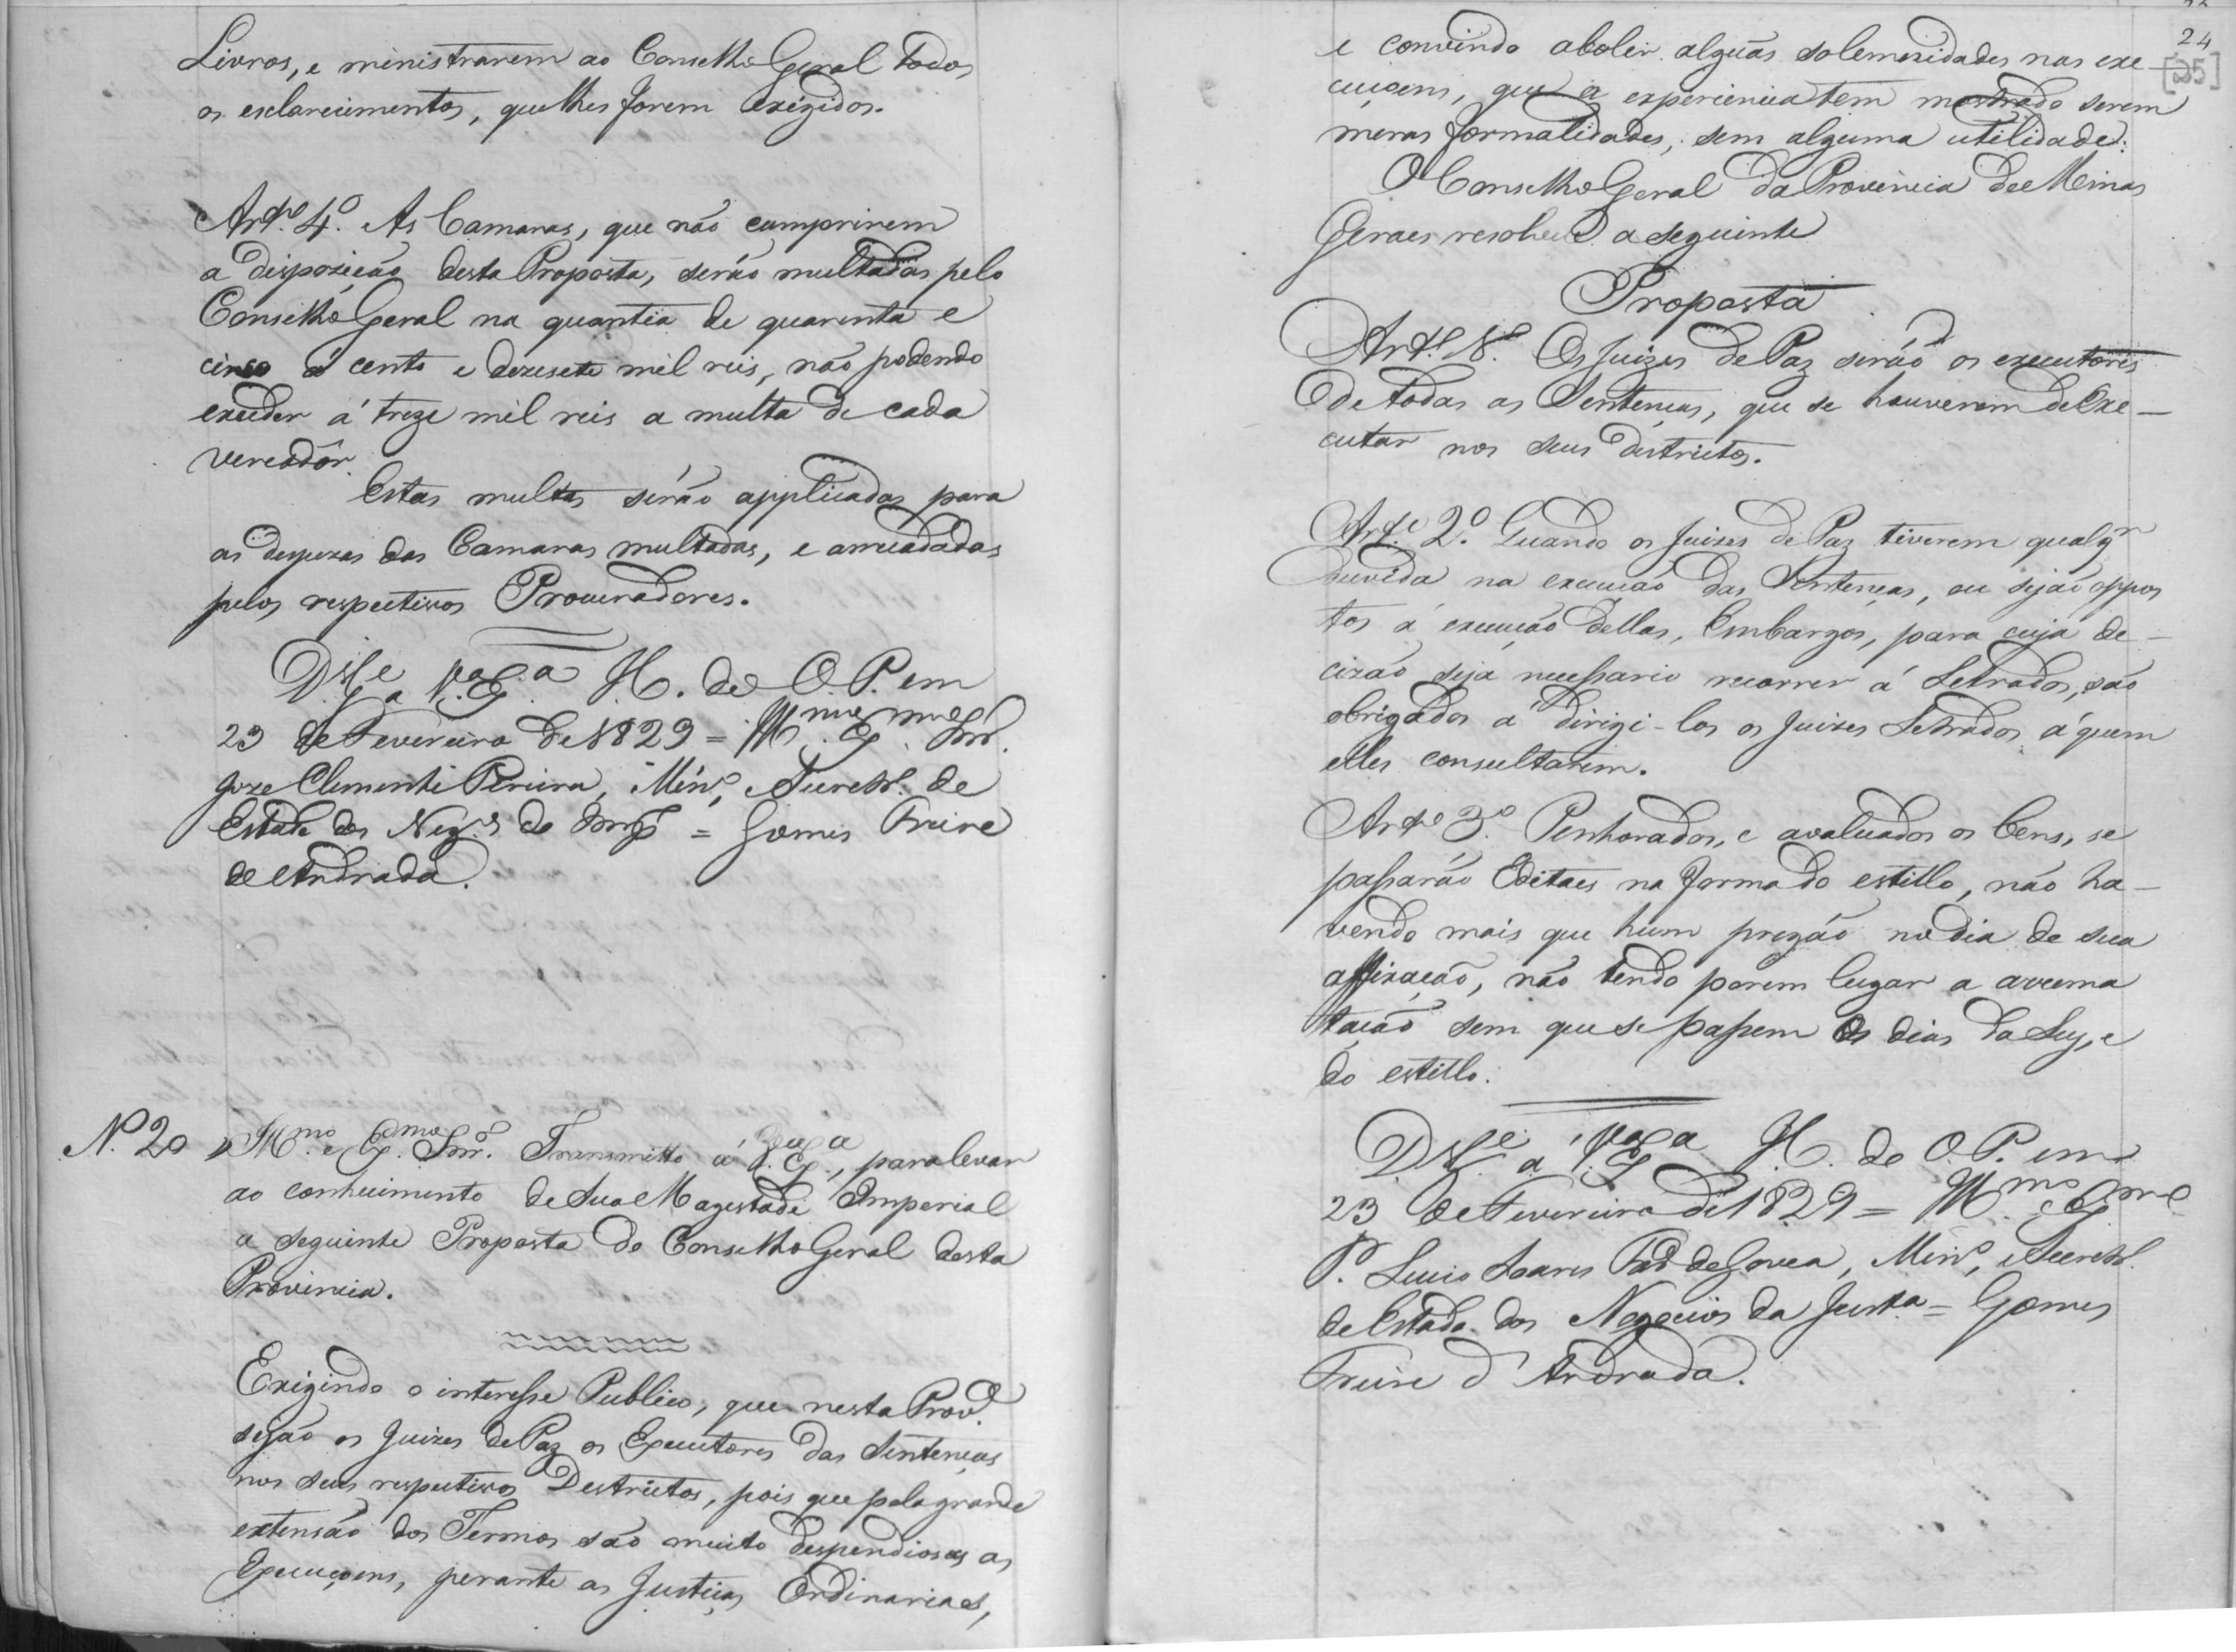 Livros, e ministrarem ao Conselho Geral todos
os esclarecimentos, que lhes forem exigidos.
Artº. 4º. As Camaras, que não cumprirem
a disposição desta Proposta, serão multadas pelo
Conselho Geral na quantia de quarenta e
cinco á cento e dezesete mil reis, não podendo
exceder á treze mil reis a multa de cada
vereadôr.
Estas multas serão applicadas para
as despezas das Camaras multadas, e arrecadadas
pelos respectivos Procuradores.
Ds. Ge. a V. Exa. H. de O. P. em
23 de Fevereiro de 1829 = Illmo. e Exmo. Snr.
Joze Clemente Pereira, Minº, e Secretrº. de
Estado dos Negos. do Impº = Gomes Freire
de Andrada.
N. 20 Illmo. e Exmo. Snr. Transmitto á V. Exa., para levar
ao conhecimento de Sua Magestade Imperial
a seguinte Proposta do Conselho Geral desta
Provincia.
Exigindo o interesse Publico, que nesta Provª.
sejão os Juizes de Paz os Executores das Sentenças
nos seus respectivos Destrictos, pois que pela grande
extensão dos Termos são muito despendiosas as
Execuçoens, perante as Justiças Ordinarias,
24
[25]
e convindo abolir algũas solemnidades nas exe
cuçoens, que a experiencia tem mostrado serem
meras formalidades, sem alguma utilidade:
O Conselho Geral da Provincia de Minas
Geraes resolveu a seguinte
Proposta
Artº. 1º. Os Juizes de Paz serão os executores
de todas as Sentenças, que se houverem de Exe-
cutar nos seus Districtos.
Artº. 2º. Quando os Juizes de Paz tiverem qualqr
duvida na execução das Sentenças, ou sejão oppos
tos á execução dellas, Embargos, para cuja de-
cizão seja necessario recorrer á Letrados, são
obrigados a dirigi-los os Juizes Letrados á quem
elles consultarem.
Artº 3º. Penhorados, e avaluados os bens, se
passarão Editaes na forma do estillo, não ha-
vendo mais que hum pregão no dia de sua
affixação, não tendo porem lugar a arrema
tação sem que se passem os dias da Ley, e
do estillo.
Ds. Ge. a V. Exa. H. de O. P. em
23 de Fevereiro de 1829 = Illmo. e Exmo
Sr. Lucio Soares Txª de Govea, Minº, e Secretrº.
de Estado dos Negocios da Justa. = Gomes
Freire d'Andrada.